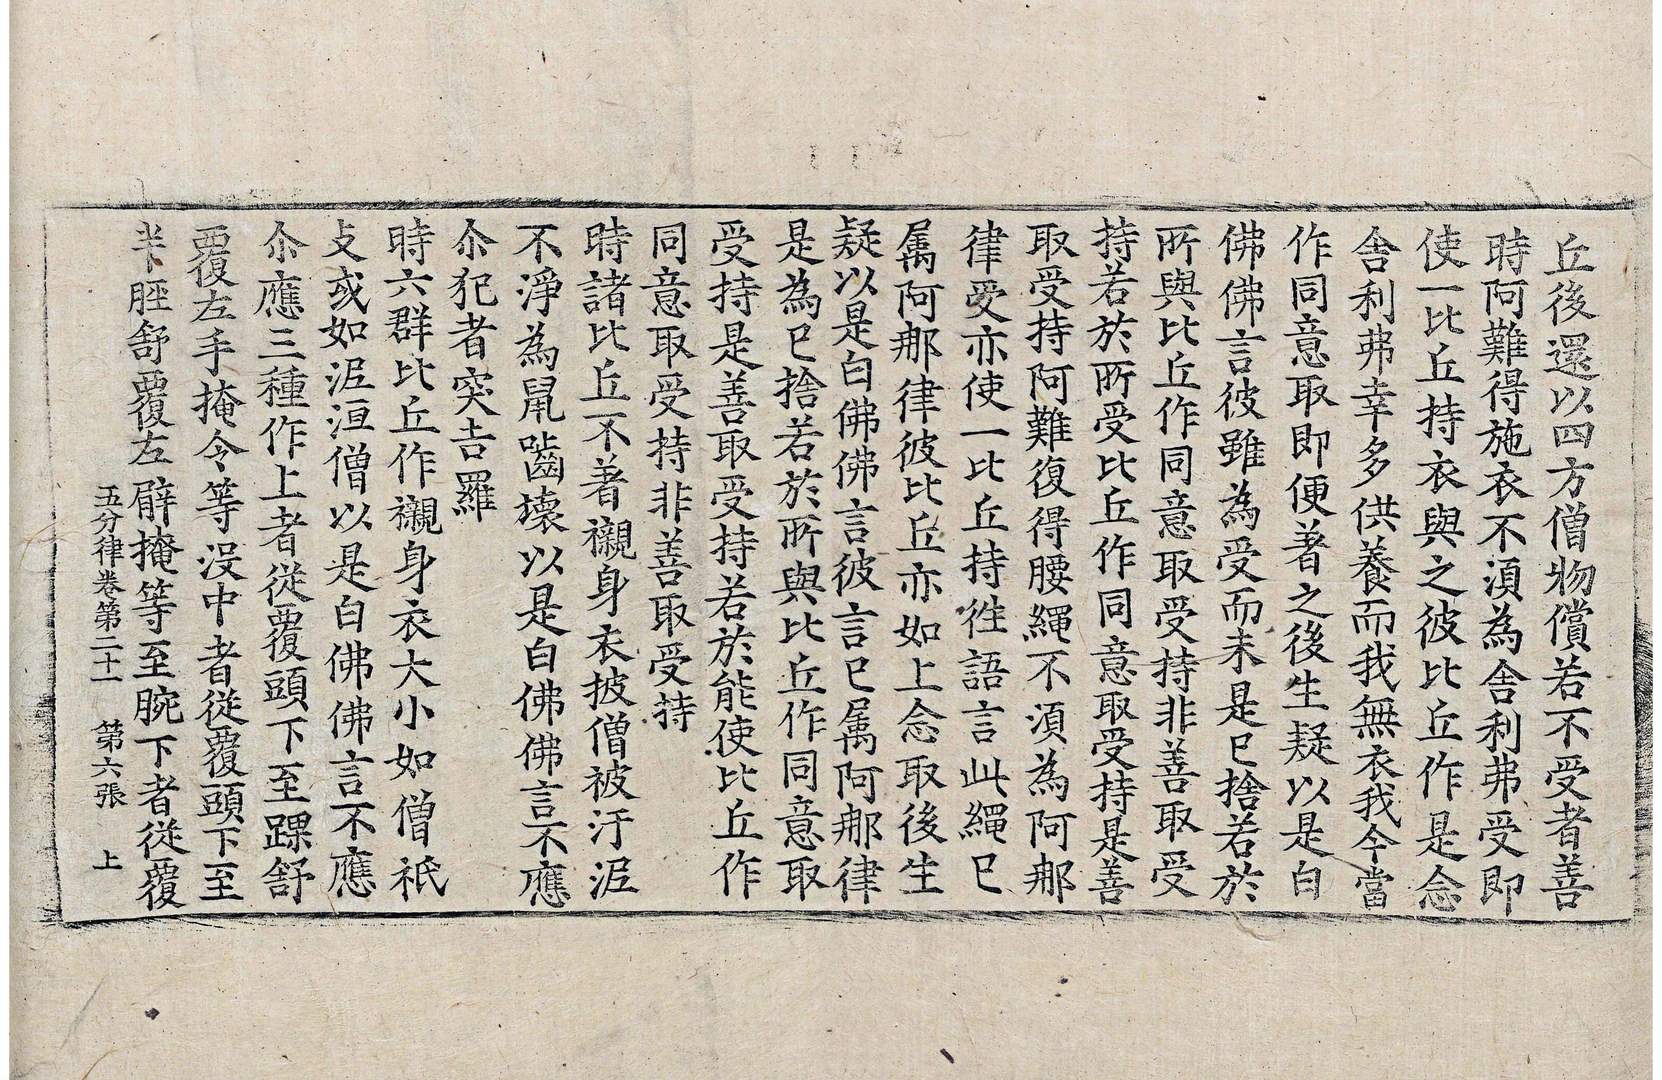 丘後還以四方僧物償若不受者善
時阿難得施衣不湏為舎利弗受即
使一比丘持衣與之彼比丘作是念
舎利弗幸多供養而我無衣我今當
作同意取即便著之後生疑以是白
佛佛言彼雖為受而未是已捨若於
所與比丘作同意取受持非善取受
持若於所受比丘作同意取受持是善
取受持阿難復得腰繩不湏為阿那
律受亦使一比丘持徃語言此繩已
属阿那律彼比丘亦如上念取後生
疑以是白佛佛言彼言已属阿那律
是為已捨若於所與比丘作同意取
受持是善取受持若於能使比丘作
同意取受持非善取受持
時諸比丘不著襯身衣披僧被汙泥
不淨為鼠嚙壊以是白佛佛言不應
尒犯者突吉羅
時六群比丘作襯身衣大小如僧祇
支或如泥洹僧以是白佛佛言不應
尒應三種作上者從覆頭下至踝舒
覆左手掩令等沒中者從覆頭下至
半脛舒覆左臂掩等至腕下者從覆
五分律卷第二十一　第六張　上